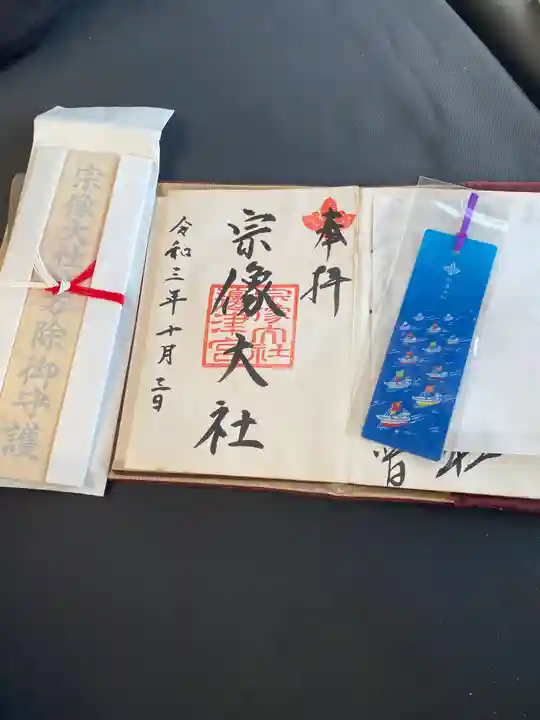 奉拝
宗像大社
宗像大社
邊津宮
令和三年十月三日
宗像大社
除御守護